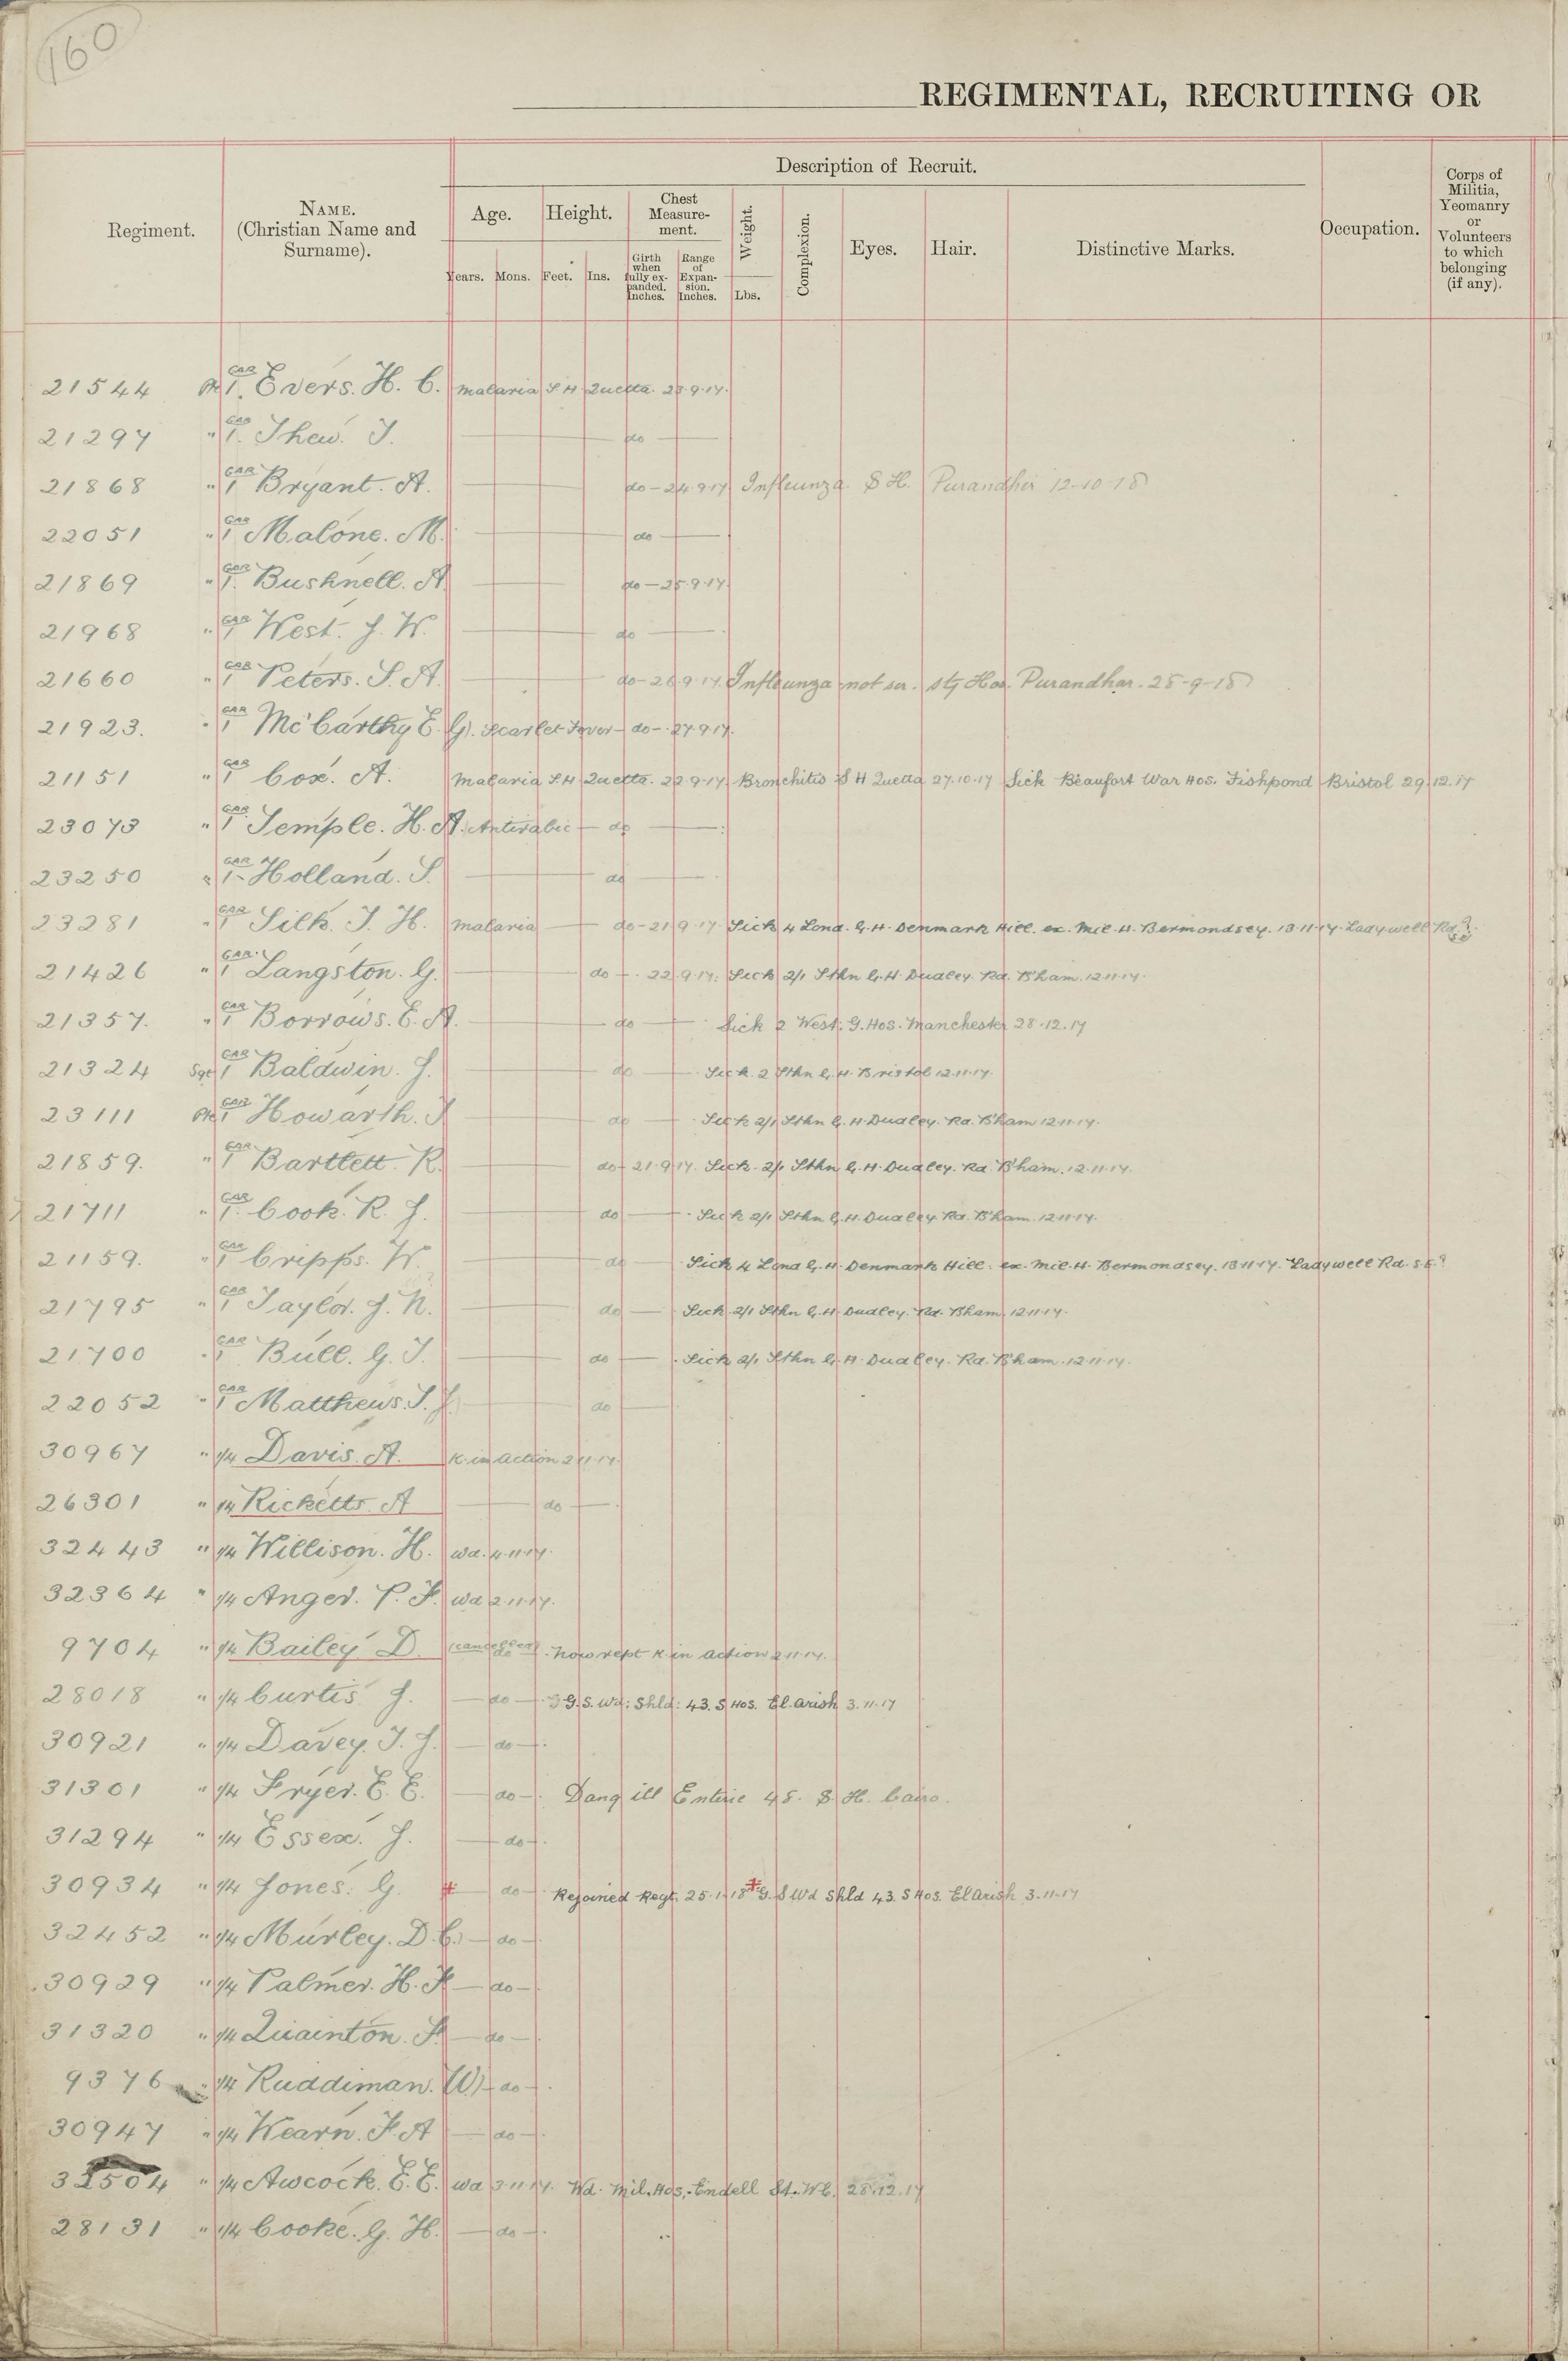 160
REGIMENTAL, RECRUITING OR
Regiment.
NAME.
(Christian Name and
Surname).
Description of Recruit.
Age.
Height.
Chest
Measure-
ment.
Weight.
Complexion.
Eyes.
Hair.
Distinctive Marks.
Occupation.
Corps of
Militia,
Yeomanry
or
Volunteers
to which
belonging
(if any).
Years. Mons. Feet. Ins.
Girth
when
fully ex-
panded.
Inches.
Range
of
Expan-
sion.
Inches.
Lbs.
21544 Pte GAR 1. Evers. H. C. malaria S H Quetta. 23.9.17.
21297 " GAR 1. Thew. J. do
21868 " GAR 1 Bryant. A. do - 24.9.17 Influenza. S H. Purandhir 12-10-18
22051 " GAR 1 Malone. M. do
21869 " GAR 1. Bushnell. A do - 25.9.17
21968 " GAR 1 West. J. W. do
21660 " GAR 1 Peters. S. A. do - 26.9.17 Influenza not ser. Stg Hos. Purandhar. 28-9-18
21923. " GAR 1 McCarthy E. G. Scarlet Fever - do - 27.9.17.
21151 " GAR 1 Cox. A. Malaria S.H. Quetta. 22.9.17. Bronchitis S H Quetta 27.10.17 Sick Beaufort War Hos. Fishpond Bristol 29.12.17
23073 " GAR 1 Temple. H. A. Antirabic - do
23250 " GAR 1. Holland. S. do
23281 " GAR 1 Silk. J. H. malaria - do - 21.9.17 Sick 4 Lond. G.H. Denmark Hill. ex. Mil. H. Bermondsey. 13.11.17. Ladywell Rd. S.E?
21426 " GAR 1 Langston. G. do - 22.9.17. Sick 2/1 Sthn G.H. Dudley. Rd. B'ham. 12.11.17.
21357. " GAR 1 Borrows. E. A. do Sick 2 West. G. Hos. Manchester 28.12.17
21324 Sgt GAR 1 Baldwin. J. do Sick. 2 Sthn G. H. Bristol 12.11.17.
23111 Pte GAR 1 Howarth. J do Sick 2/1 Sthn G. H. Dudley. Rd. B'ham 12.11.17.
21859. " GAR 1 Bartlett. R. do - 21.9.17. Sick. 2/1 Sthn G. H. Dudley. Rd B'ham. 12.11.17.
21711 " GAR 1. Cook. R. J. do Sick 2/1 Sthn G. H. Dudley Rd. B'ham. 12.11.17.
21159. " GAR 1 Cripps. W. do Sick 4 Lond G. H. Denmark Hill. ex. Mil. H. Bermondsey. 13.11.17. Ladywell Rd. S.E?
21795 " GAR 1 Taylor. J. N. do Sick. 2/1 Sthn G. H. Dudley. Rd. B'ham. 12.11.17.
21700 " GAR 1 Bull. G. J. do Sick 2/1 Sthn G. H. Dudley. Rd. B'ham. 12.11.17.
22052 " GAR 1 Matthews. S. J. do
30967 " 1/4 Davis. A. K. in action 2.11.17.
26301 " 1/4 Ricketts A do
32443 " 1/4 Willison. H. wd. 4.11.17.
32364 " 1/4 Anger. P. F. wd 2.11.17.
9704 " 1/4 Bailey D. (cancelled) do. now rept K in action 2.11.17.
28018 " 1/4 Curtis J. do G.S. Wd: Shld: 43. S Hos. El. Arish 3.11.17
30921 " 1/4 Davey. T. J. do
31301 " 1/4 Fryer. E. E. do Dang ill Enteric 45. S. H. Cairo.
31294 " 1/4 Essex. J. do
30934 " 1/4 Jones. G. ‡ do Rejoined Regt. 25.1.18 ‡ G. S Wd Shld 43. S Hos. El Arish 3.11.17
32452 " 1/4 Murley. D. C. do
30929 " 1/4 Palmer. H. F do
31320 " 1/4 Quainton. F. do
9376 " 1/4 Ruddiman. W do
30947 " 1/4 Wearn. F. A do
32504 " 1/4 Awcock. E. E. wd 3.11.17. Wd. Mil. Hos. Endell St. W.C. 28.12.17
28131 " 1/4 Cooke. G. H. do